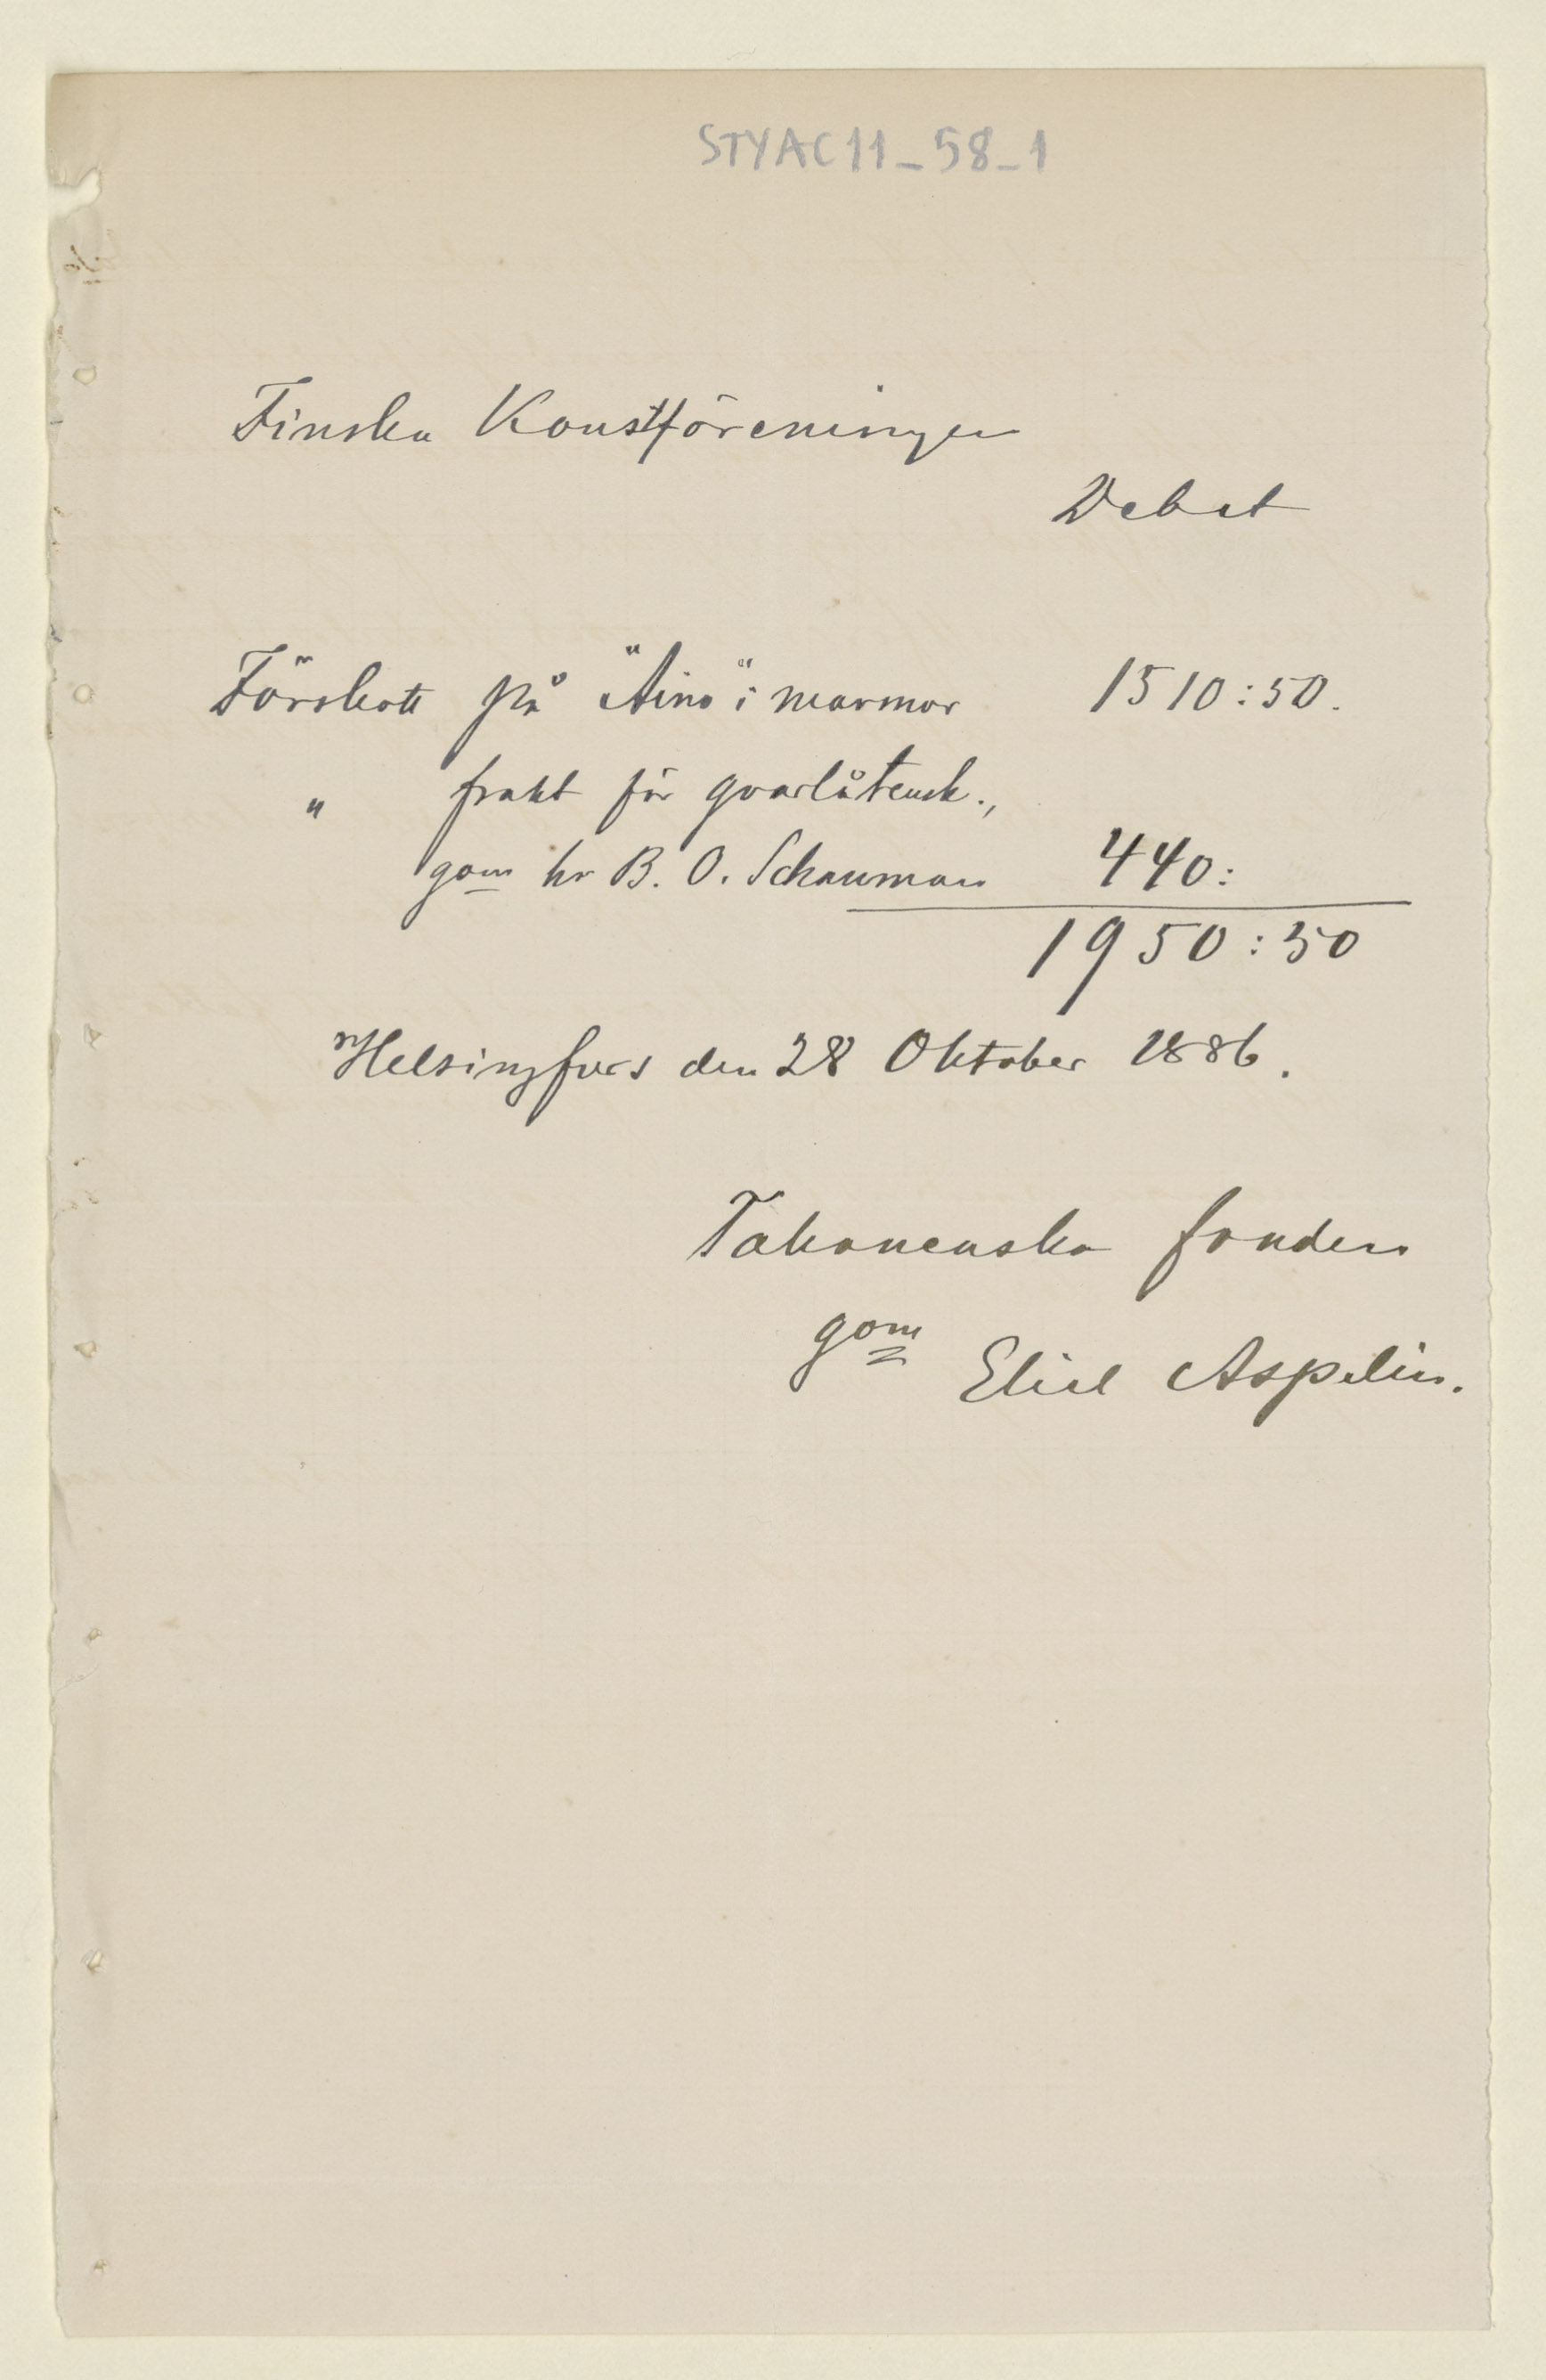 STYAC11_58_1
Finska Konstföreningen
Debet
Förskott på "Aino" i marmor 1510:50.
" frakt för qvarlåtensk.,
gom hr B. O. Schauman 440:
1950:50
Helsingfors den 28 Oktober 1886.
Takanenska fonden
gom Eliel Aspelin.